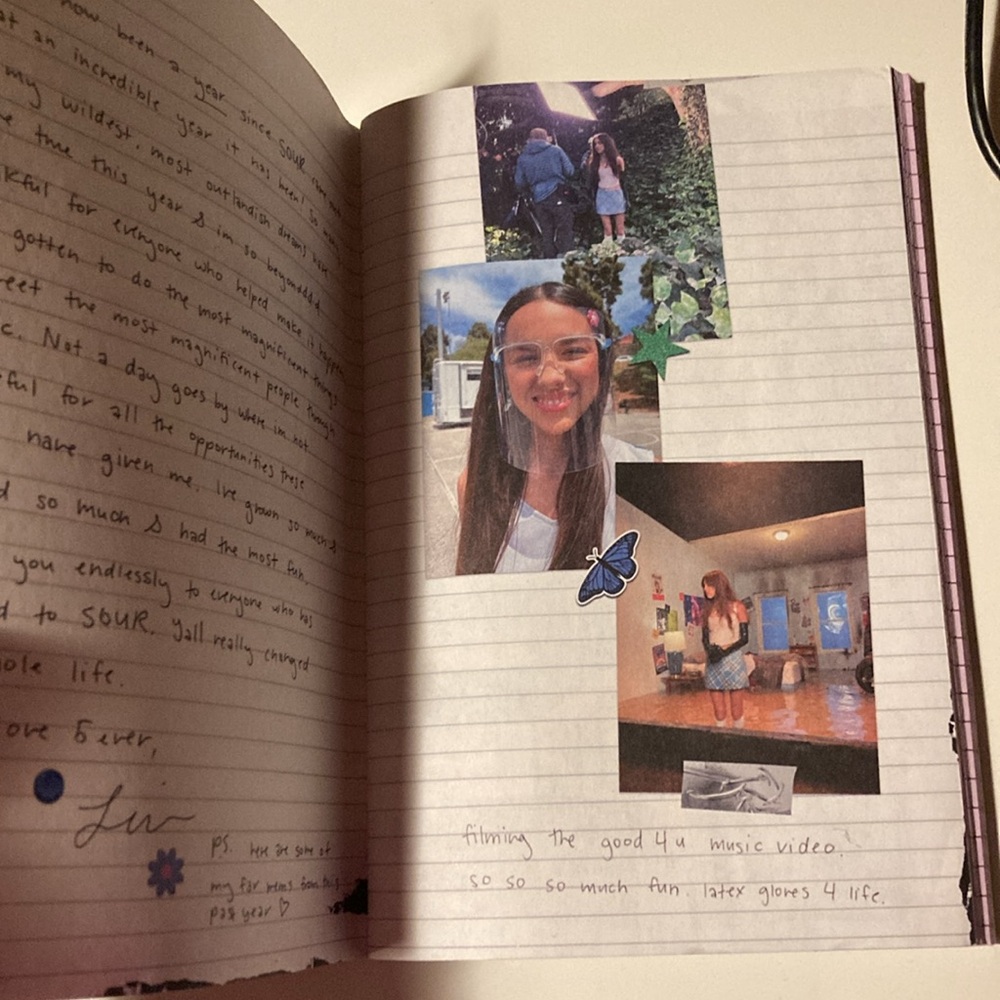 now been a year since SOUR came out
at an incredible year it has been! So many
my wildest, most outlandish dreams have
me true this year & im so beyonddd
kful for everyone who helped make it happen
gotten to do the most magnificent things
eet the most magnificent people through
c. Not a day goes by where im not
ful for all the opportunities these
have given me. Ive grown so much &
d so much & had the most fun.
you endlessly to everyone who has
d to SOUR. Yall really changed
ole life.
ove 5 ever,
Liv
ps. here are some of
my fav mems from this
past year ♡
filming the good 4 u music video.
so so so much fun. latex gloves 4 life.